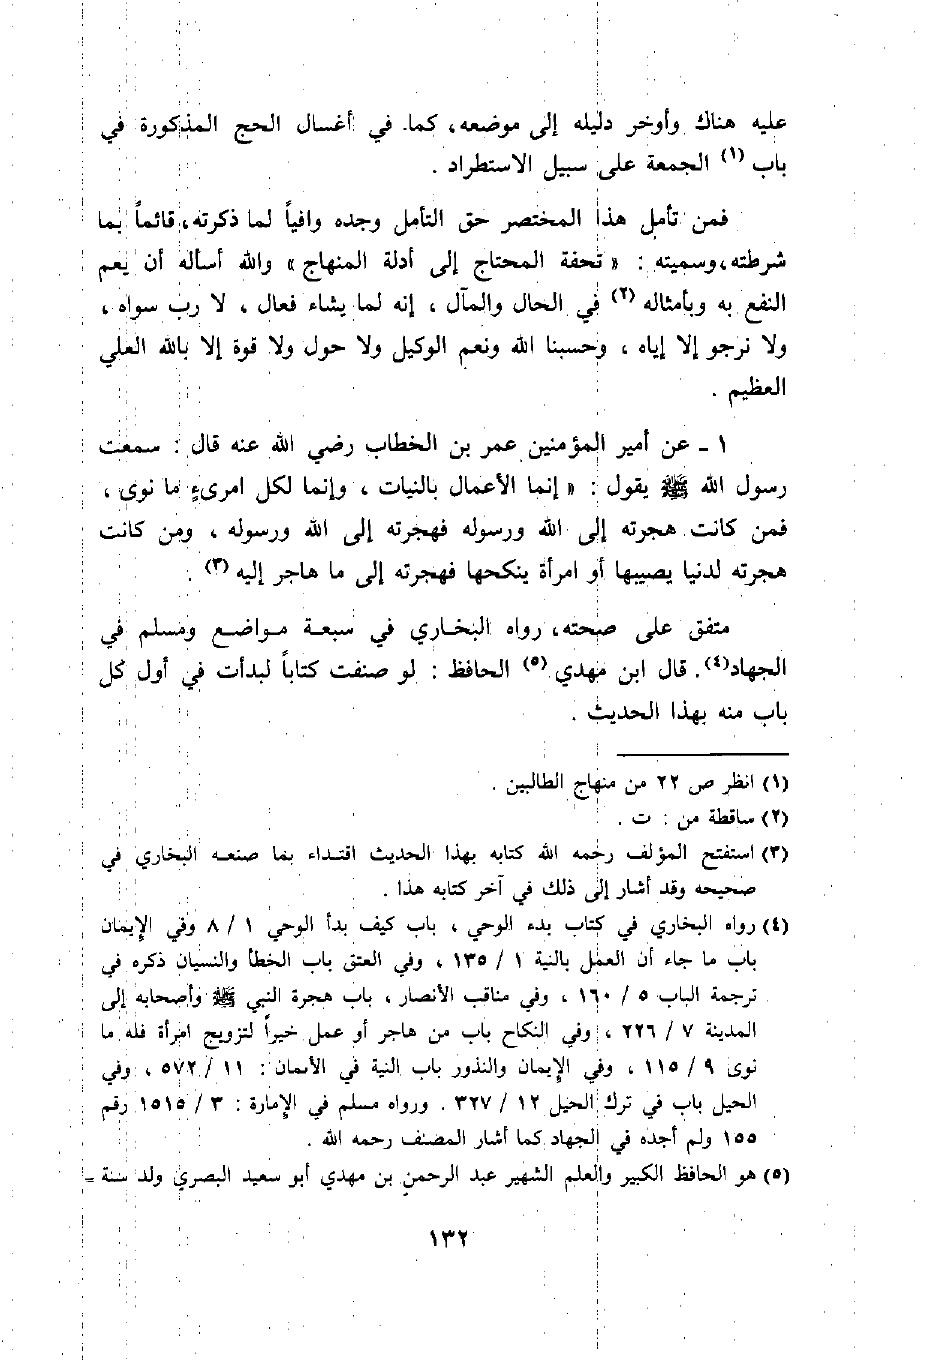 عليه هناك وأوخر دليله إلى موضعه، كما. في أغسال الحج المذكورة في
باب (١) الجمعة على سبيل الاستطراد .
فمن تأمل هذا المختصر حق التأمل وجده وافياً لما ذكرته، قائماً بما
شرطته، وسميته : « تحفة المحتاج إلى أدلة المنهاج» والله أسأله أن يعم
النفع به وبأمثاله (٢) في الحال والمآل ، إنه لما يشاء فعال ، لا رب سواه ،
ولا نرجو إلا إياه ، وحسبنا الله ونعم الوكيل ولا حول ولا قوة إلا بالله العلي
العظيم .
١ ـ عن أمير المؤمنين عمر بن الخطاب رضي الله عنه قال : سمعت
رسول الله ﷺ يقول : « إنما الأعمال بالنيات ، وإنما لكل امرىءٍ ما نوى ،
فمن كانت هجرته إلى الله ورسوله فهجرته إلى الله ورسوله ، ومن كانت
هجرته لدنيا يصيبها أو امرأة ينكحها فهجرته إلى ما هاجر إليه (٣) .
متفق على صحته، رواه البخاري في سبعة مواضع ومسلم في
الجهاد(٤). قال ابن مهدي (٥) الحافظ : لو صنفت كتاباً لبدأت في أول كل
باب منه بهذا الحديث .
(١) انظر ص ٢٢ من منهاج الطالبين .
(٢) ساقطة من : ت .
(٣) استفتح المؤلف رحمه الله كتابه بهذا الحديث اقتداء بما صنعه البخاري في
صحيحه وقد أشار إلى ذلك في آخر كتابه هذا .
(٤) رواه البخاري في كتاب بدء الوحي ، باب كيف بدأ الوحي ١ / ٨ وفي الإيمان
باب ما جاء أن العمل بالنية ١ / ١٣٥ ، وفي العتق باب الخطأ والنسيان ذكره في
ترجمة الباب ٥ / ١٦٠ ، وفي مناقب الأنصار ، باب هجرة النبي ﷺ وأصحابه إلى
المدينة ٧ / ٢٢٦ ، وفي النكاح باب من هاجر أو عمل خيراً لتزويج امرأة فله ما
نوى ٩ / ١١٥ ، وفي الإيمان والنذور باب النية في الأيمان : ١١ / ٥٧٢ ، وفي
الحيل باب في ترك الحيل ١٢ / ٣٢٧ . ورواه مسلم في الإمارة : ٣ / ١٥١٥ رقم
١٥٥ ولم أجده في الجهاد كما أشار المصنف رحمه الله .
(٥) هو الحافظ الكبير والعلم الشهير عبد الرحمن بن مهدي أبو سعيد البصري ولد سنة =
١٣٢